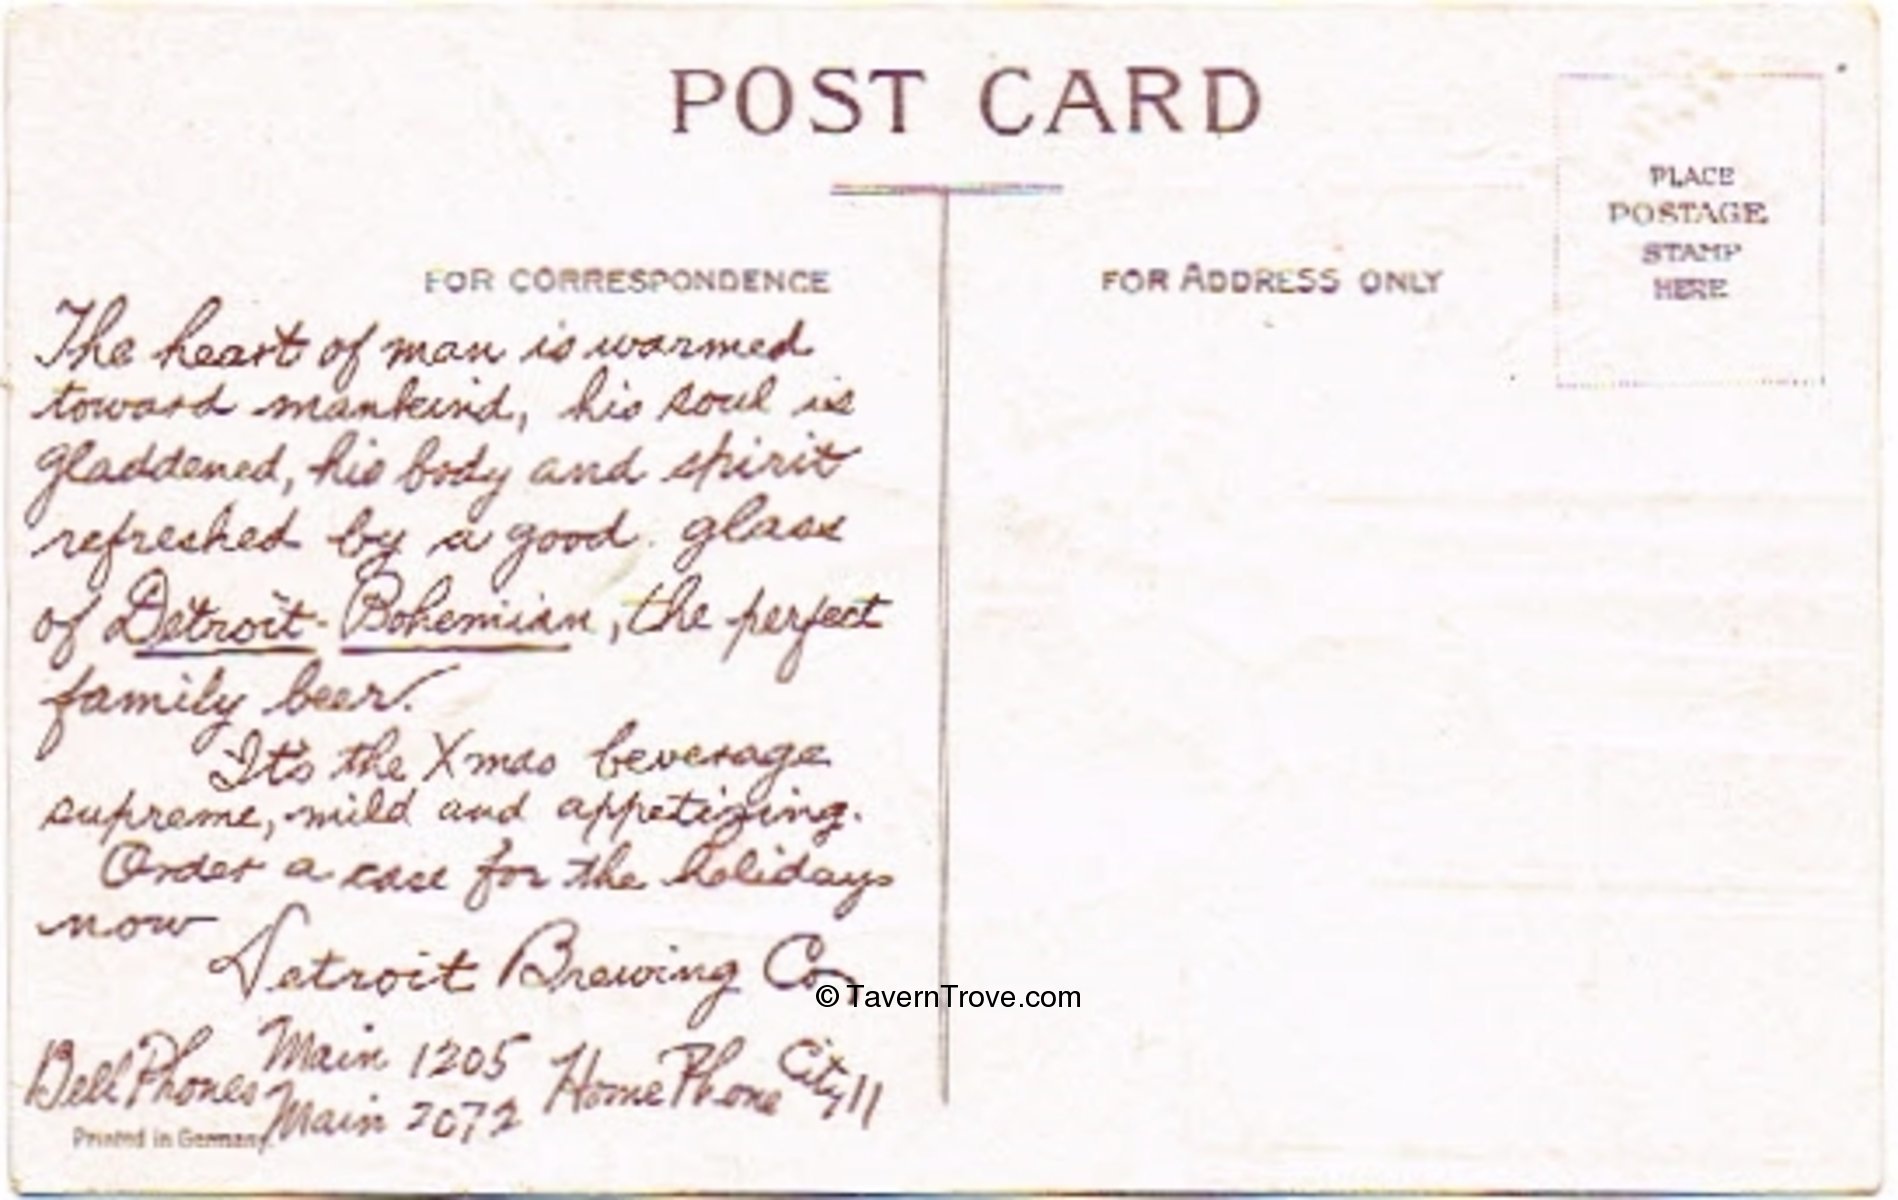 POST CARD
FOR CORRESPONDENCE
FOR ADDRESS ONLY
PLACE
POSTAGE
STAMP
HERE
The heart of man is warmed
toward mankind, his soul is
gladdened, his body and spirit
refreshed by a good glass
of Detroit-Bohemian, the perfect
family beer.
It's the Xmas beverage
supreme, mild and appetizing.
Order a case for the holidays
now
Detroit Brewing Co.
Bell Phones Main 1205 Home Phone City 11
Main 2072
Printed in Germany.
© TavernTrove.com